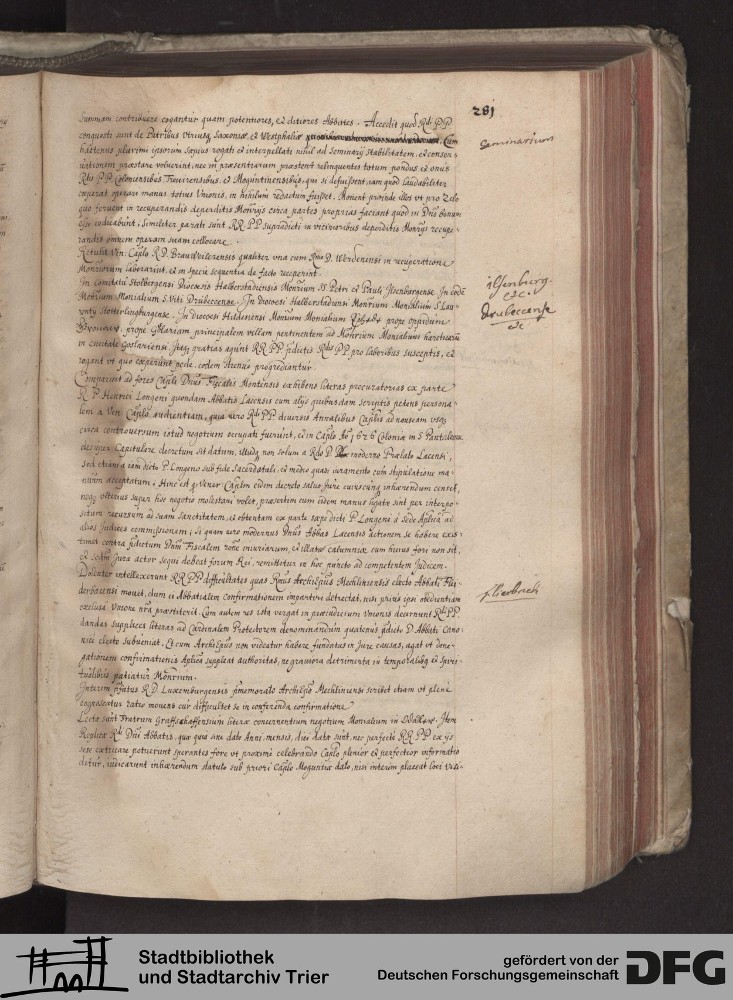 281
summam contribuere cogantur quam potentiores, et ditiores Abbates. Accedit quod Rdi PP.
conquesti sunt de Patribus utriusq Saxoniæ, et Westphaliæ Cum
hactenus plurimi ipsorum sæpius rogati et interpellati nihil ad Seminarij stabilitatem, et conser-
vationem præstare voluerint, nec in præsentiarum præstent relinquentes totum pondus et onus
Rdis PP. Coloniensibus, Trevirensibus, et Moguntinensibus, qui si defuissent, iam quod laudabiliter
cœperat operari manus totius Unionis, in nihilum redactum fuisset. Monent proinde illos ut pro zelo
quo feruent in recuperandis deperditis Monrijs circa partes proprias faciant quod in Dno bonum
esse iudicabunt. Similiter parati sunt RR. PP. supradicti in vicinioribus deperditis Monrijs recupe-
randis omnem operam suam collocare.
Retulit Ven. Caplo R.D. Brauweilerensis qualiter una cum Rmo D. Werdenensi in recuperatione
Monriorum laborarint, et in specie sequentia de facto receperint.
In Comitatu Stolbergensi Diocesis Halberstadiensis Monrium SS. Petri et Pauli Ilsenburgense. In eodē
Monrium Monialium S. Viti Drubeccense. In Diocesi Halberstadiensi Monrium Monialium S. Lau-
renty Stotterlingburgense. In Diocesi Hildesiensi Monrium Monialium prope oppidum
prope Goslariam principalem villam pertinentem ad Monrium Monialium
in Civitate Goslariensi. Itaq gratias agunt RR PP. prdictis Rdis PP. pro laboribus susceptis, et
rogant ut quo cœperunt pede, eodem strenuè progrediantur.
Comparuit ad fores Capli Dnus Fiscalis Montensis exhibens literas procuratorias ex parte
R. P. Henrici Longeni quondam Abbatis Lacensis cum alijs quibusdam scriptis petens persona-
lem a Ven. Caplo audientiam, quia vero Rdi PP. diversis Annalibus Caplis ad nauseam usq
circa controversum istud negotium occupati fuerint, et in Caplo Ao 1626 Coloniæ in S. Pantaleone
desuper Capitulare decretum sit datum, illudq non solum a Rdo P. moderno Prælato Lacensi,
sed etiam a iam dicto P. Longeno sub fide sacerdotali, et medio quasi iuramento cum stipulatione ma-
nuum acceptatum; Hinc est q Vener. Caplm eidem decreto salvo Jure cuiuscunq inhærendum censet,
neq ulterius super hoc negotio molestari volet, præsertim cum eidem manus ligatæ sint per interpo-
situm recursum ad suam Sanctitatem, et obtentam ex parte sæpe dicti P. Longeni a Sede Aplica ad
alios Judices commissionem; si quam vero modernus Dnus Abbas Lacensis actionem se habere exis-
timet contra prdictum Dnm Fiscalem rone iniuriarum, et illatæ calumniæ, cum huius fori non sit,
et secdm Jura actor sequi debeat forum Rei, remittitur in hoc puncto ad competentem Judicem.
Dolenter intellexerunt RR. PP. difficultates quas Rmus Archiepus Mechliniensis electo Abbati Flie-
derbacensi mouet, dum ei Abbatialem Confirmationem impartiri detrectat, nisi prius ipsi obedientiam
exclusa Unione nra præstiterit. Cum autem res ista vergat in præiudicium Unionis decernunt Rdi PP.
dandas supplices literas ad Cardinalem Protectorem denominandum quatenus prdicto D. Abbati Cano-
nicè electo subueniat. Et cum Archiepus non videatur habere fundatas in Jure causas, agat ut dene-
gationem confirmationis Aplica suppleat authoritas, ne graviora detrimenta in temporalibq et spiri-
tualibus patiatur Monrium.
Interim prfatus R.D. Luxemburgensis prmemorato Archiepo Mechlinensi scribet etiam ut plenè
cognoscatur ratio mouens cur difficultet se in conferenda confirmatione.
Lectæ sunt Fratrum Graffschaffensium literæ concernentium negotium Monialium in Item
Replica Rdi Dni Abbatis, quæ quia sine dato Anni, mensis, diei datæ sunt, nec perfectè RR PP. ex ijs
sese extricare potuerunt sperantes fore ut proximè celebrando Caplo plenior et perfectior informatio
detur, iudicarunt inhærendum statuto sub priori Caplo Moguntiæ dato, nisi interim placeat loci visi-
Seminarium
ilsenburg.
etc.
Drubeccense
etc
flierbach
Stadtbibliothek
und Stadtarchiv Trier
gefördert von der
Deutschen Forschungsgemeinschaft
DFG